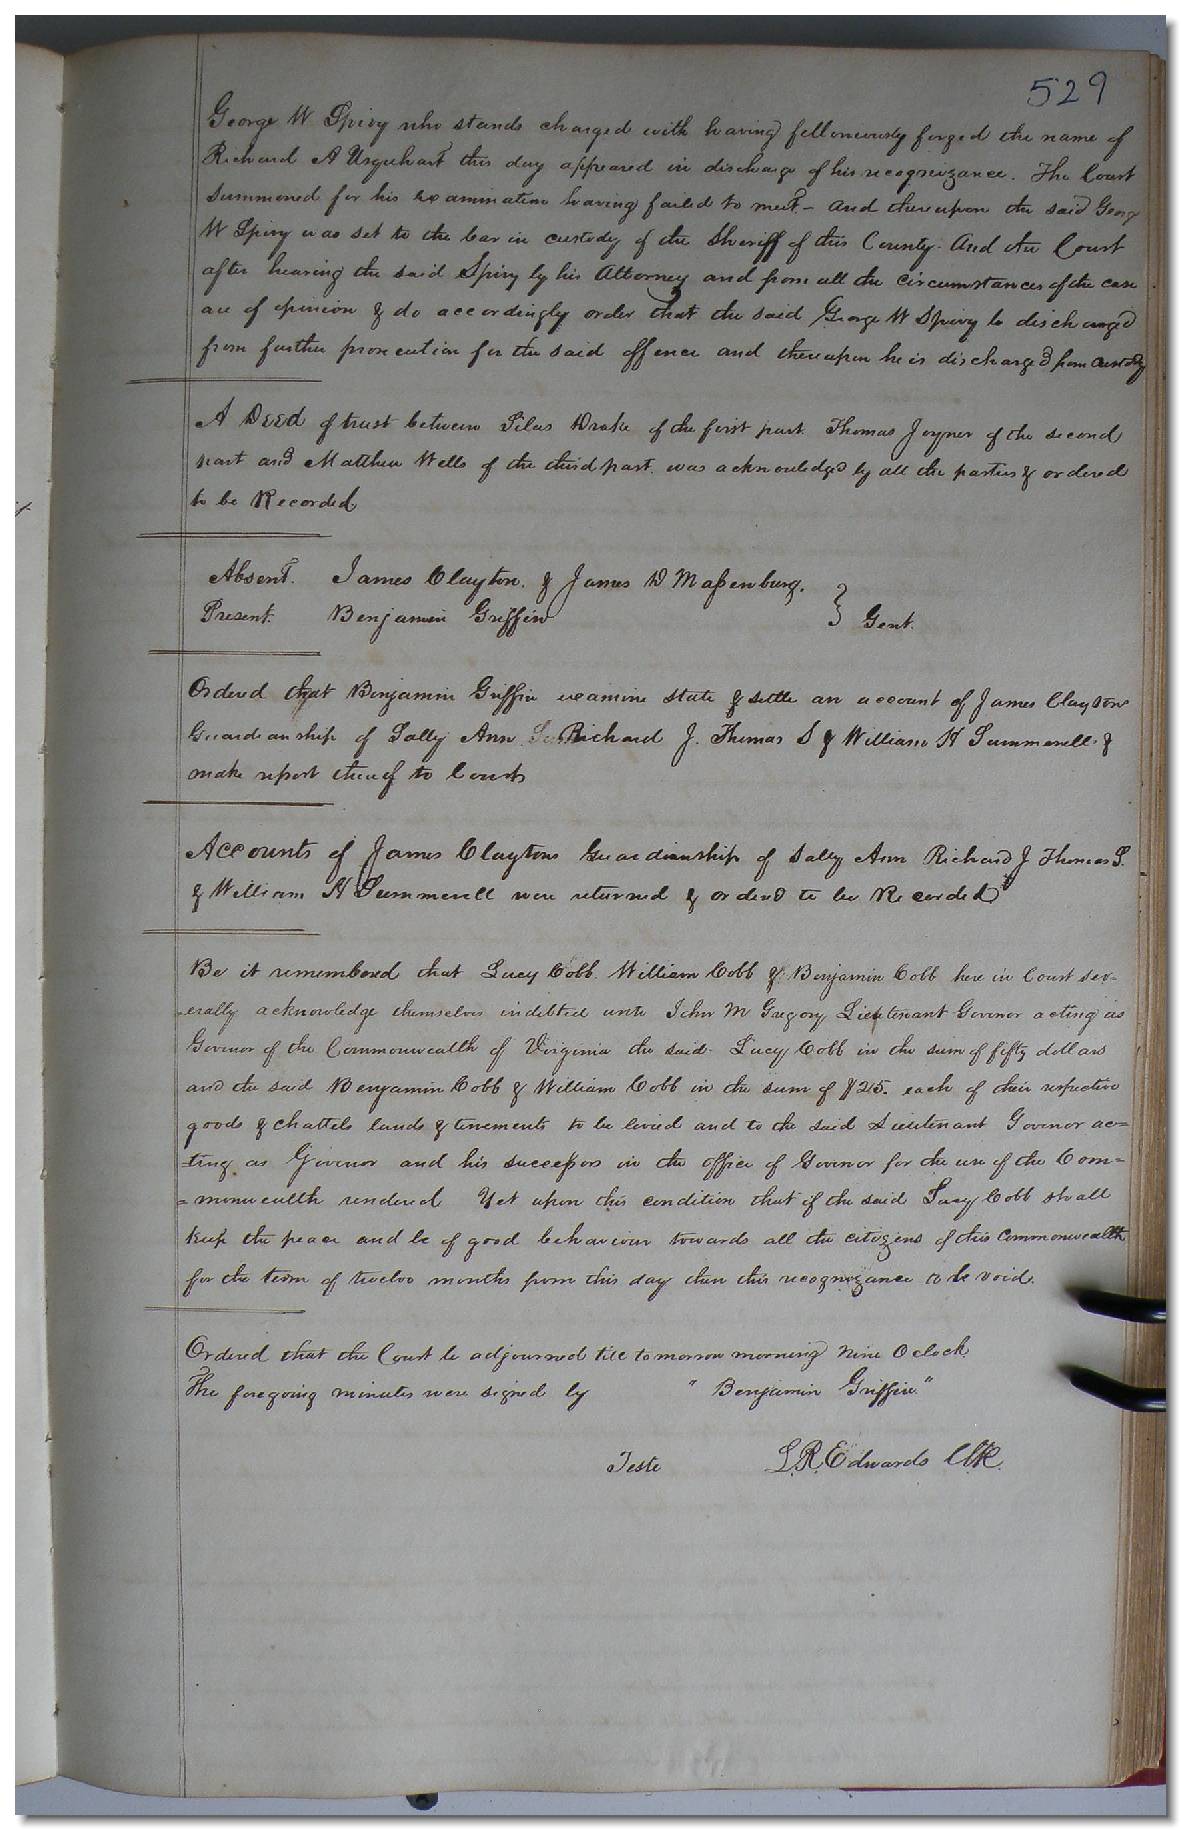 529
George W Spivy who stands charged with having felloneously forged the name of
Richard A Urquhart this day appeared in discharge of his recognizance. The Court
summoned for his examination having failed to meet - and thereupon the said George
W Spivy was set to the bar in custody of the Sheriff of this County. And the Court
after hearing the said Spivy by his Attorney and from all the circumstances of the case
are of opinion & do accordingly order that the said George W Spivy be discharged
from further prosecution for the said offence and thereupon he is discharged from custody
A Deed of trust between Silas Drake of the first part Thomas Joyner of the second
part and Matthew Wells of the third part. was acknowledged by all the parties & ordered
to be Recorded
Absent. James Clayton. & James D Massenburg.
Present. Benjamin Griffin } Gent.
Ordered that Benjamin Griffin examine state & settle an account of James Clayton
Guardianship of Sally Ann Richard J. Thomas S & William H Summerell &
make report thereof to Court
Accounts of James Claytons Guardianship of Sally Ann Richard J Thomas S.
& William H Summerell were returned & ordered to be Recorded
Be it remembered that Lucy Cobb. William Cobb & Benjamin Cobb here in Court sev-
-erally acknowledge themselves indebted unto John M Gregory Lieutenant Govenor acting as
Govenor of the Commonwealth of Virginia the said Lucy Cobb in the sum of fifty dollars
and the said Benjamin Cobb & William Cobb in the sum of $25. each of their respective
goods & chattels lands & tenements to be levied and to the said Lieutenant Govenor ac=
=ting as Govenor and his successors in the office of Govenor for the use of the Com=
=monwealth rendered Yet upon this condition that if the said Lucy Cobb shall
keep the peace and be of good behaviour towards all the citizens of this Commonwealth
for the term of twelve months from this day then this recognizance to be void.
Ordered that the Court be adjourned till tomorrow morning Nine Oclock
The foregoing minutes were signed by " Benjamin Griffin "
Teste L. R. Edwards Clk.